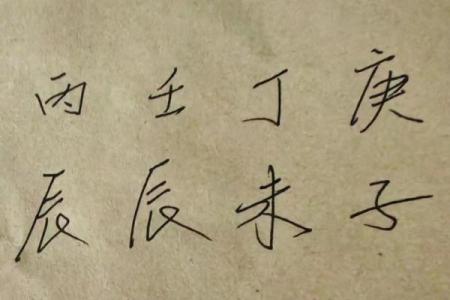 丙壬丁庚
辰辰未子